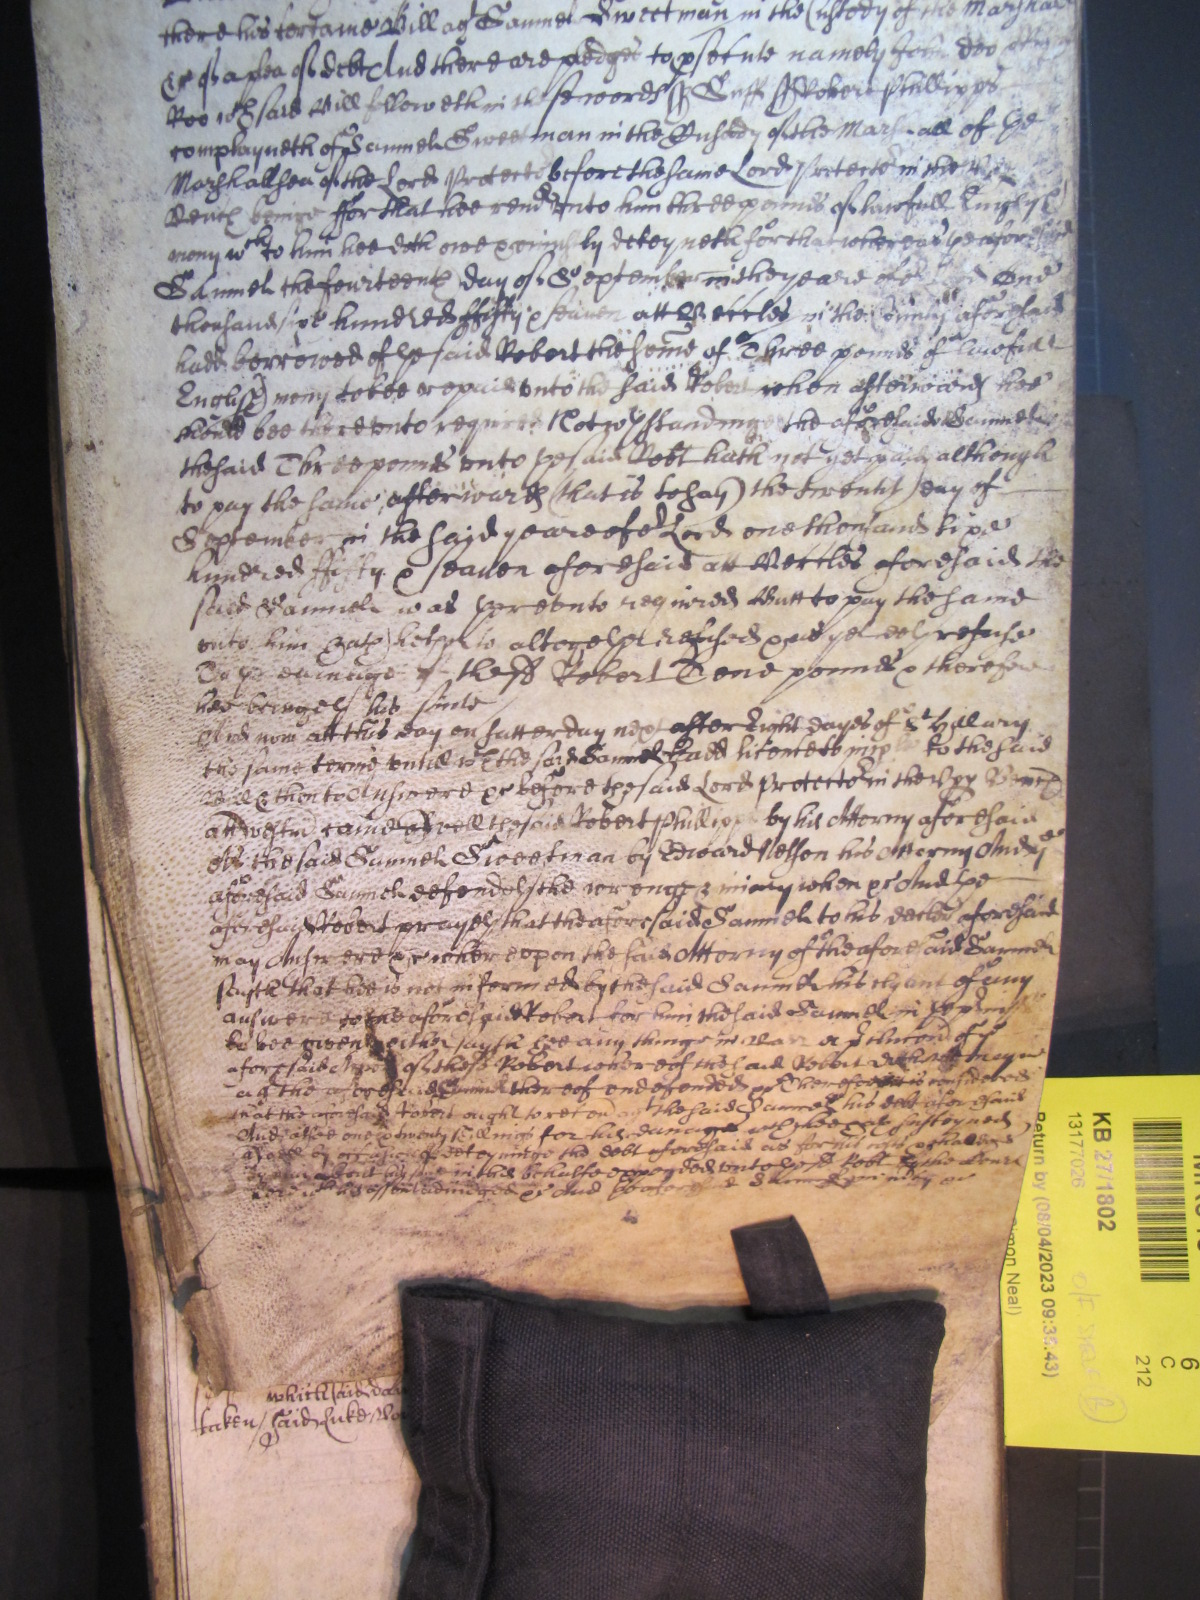 there his certaine Bill agt Samuel Sweetman in the Custody of the Marshall
&c of a plea of debt And there are pledges to psecute namely John Doo
Roo wch said Bill followeth in these words ss Suff ss Robert Phillipps
complayneth of Samuel Sweetman in the Custody of the Marshall of the
Marshallsea of the Lord Protector before the same Lord Protector in the
Bench beinge ffor that hee rend unto him three pounds of lawfull English
mony wch to him hee doth owe & uniustly deteyneth for that whereas the aforesaid
Samuel the fourteenth day of September in the yeare of or Lord One
thousand sixe hundred ffifty & seaven att Beccles in the County aforesaid
hadd borrowed of the said Robert the some of Three pounds of lawfull
English mony to bee repaid unto the said Robert when afterwards hee
should bee thereunto required Notwthstandinge the aforesaid Samuel
the said Three pounds unto the said Robt hath not yet paid although
to pay the same afterwards (that is to say) the twentith day of
September in the said yeare of or Lord one thousand sixe
hundred ffifty & seaven aforesaid att Beccles aforesaid the
said Samuel was thereunto required Butt to pay the same
unto him hath hitherto altogether refused & as yet doth refuse
To the damage of the sd Robert Tene pounds & therefore
hee bringeth his suite
And now att this day on Satterday next after Eight dayes of St Hillary
this same terme untill wch the said Samuel hadd licence to imp to the said
Bill & then to Answere &c before the said Lord Protector in the Upp Bench
att Westm came aswell the said Robert Phillipps by his Attorny aforesaid
As the said Samuel Sweetman by Edward Nelson his Attorny And the
aforesaid Samuel defendeth the wronge & iniury when &c And the
aforesayd Robert prayeth that the aforesaid Samuel to his declar aforesaid
may Answere &c whereupon the said Attorny of the aforesaid Samuel
saith that hee is not informed by the said Samuel his clyant of any
answere to the aforesaid Robert for him the said Samuel in the premises
to bee given neither sayth hee any thinge in barr
aforesaid of the sd Robert whereof the said Robert
agt the aforesaid Samuel thereof undefended &c Therefore it is considered
that the aforesaid Robert ought to recover agt the said Samuel his debt aforesaid
And alsoe one & twenty shillings for his damages wch hee hath susteyned
aswell by occasion of deteyninge the debt aforesaid as for his costs & charges
by him about his suite in this behalfe expended unto the sd Robt by the Court
here wth his assent adiudged &c And the aforesaid Samuel in mercy &c
which said
taken / said Luke
KB 27/1802
13177026
Return by (08/04/2023 09:35:43)
Simon Neal)
6
C
212